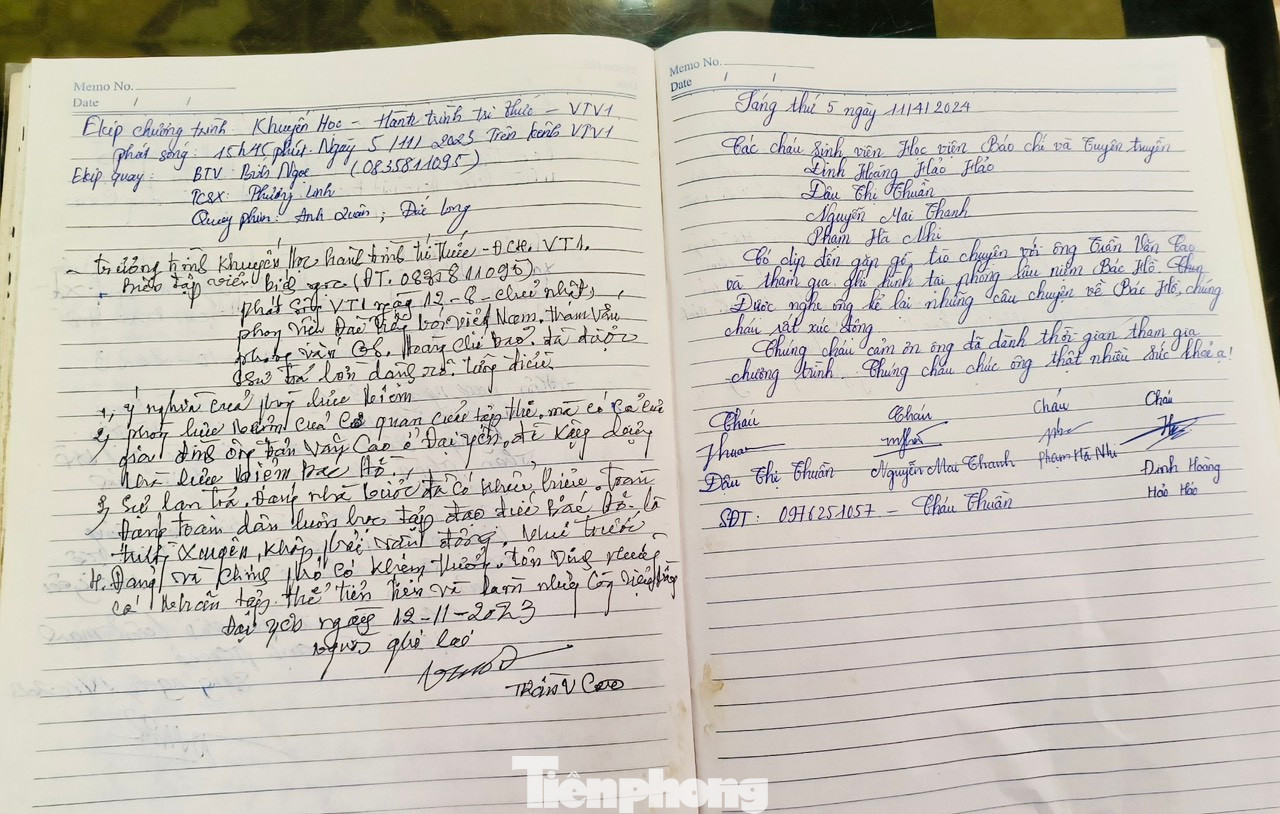 Memo No.
Date / /
Ekip chương trình: Khuyến Học - Hành trình tri thức - VTV1
phát sóng: 15h45 phút. Ngày 5/11/2023 Trên kênh VTV1
Ekip quay: BTV: Bích Ngọc (0835811095)
TCSX: Phương Linh
Quay phim: Anh Quân; Đức Long
trương trình khuyến học hành trình tri thức - VT1.
Biên tập viên bích ngọc (ĐT. 0835811095)
phát sóng VT1 ngày 12-8-chủ nhật,
phóng viên Đài việt Nam. tham vấn
phỏng vấn Hoàng chí bảo. đã được
1, ý nghĩa của phòng lưu niệm
2, phòng lưu niệm của cơ quan của tập thể. mà có cả của
gia đình ông trần Văn Cao ở Đại yên, để xây dựng
Nhà lưu niệm Bác Hồ.
3, Sự lan toả. Đảng nhà nước đã có khẩu hiệu. toàn
Đảng toàn dân luôn học tập đạo đức Bác Hồ. là
4. Đảng và chính phủ có khen thưởng. tôn vinh những
cá nhân tập thể tiên tiến và làm những công việc
Đại yên ngày 12-11-2023
người ghi
Trần V Cao
Memo No.
Date / /
Sáng thứ 5 ngày 11/4/2024
Các cháu sinh viên Học viện Báo chí và Tuyên truyền
Đinh Hoàng Hảo Hảo
Dậu Thị Thuần
Nguyễn Mai Thanh
Phạm Hà Nhi
Có dịp đến gặp gỡ, trò chuyện với ông Trần Văn Cao
và tham gia ghi hình tại phòng lưu niệm Bác Hồ.
Được nghe ông kể lại những câu chuyện về Bác Hồ, chúng
cháu rất xúc động
Chúng cháu cảm ơn ông đã dành thời gian tham gia
chương trình. Chúng cháu chúc ông thật nhiều sức khoẻ ạ!
Cháu Cháu Cháu Cháu
Dậu Thị Thuần Nguyễn Mai Thanh Phạm Hà Nhi Đinh Hoàng
Hảo Hảo
SĐT: 0976251057 - Cháu Thuần
Tiềnphong